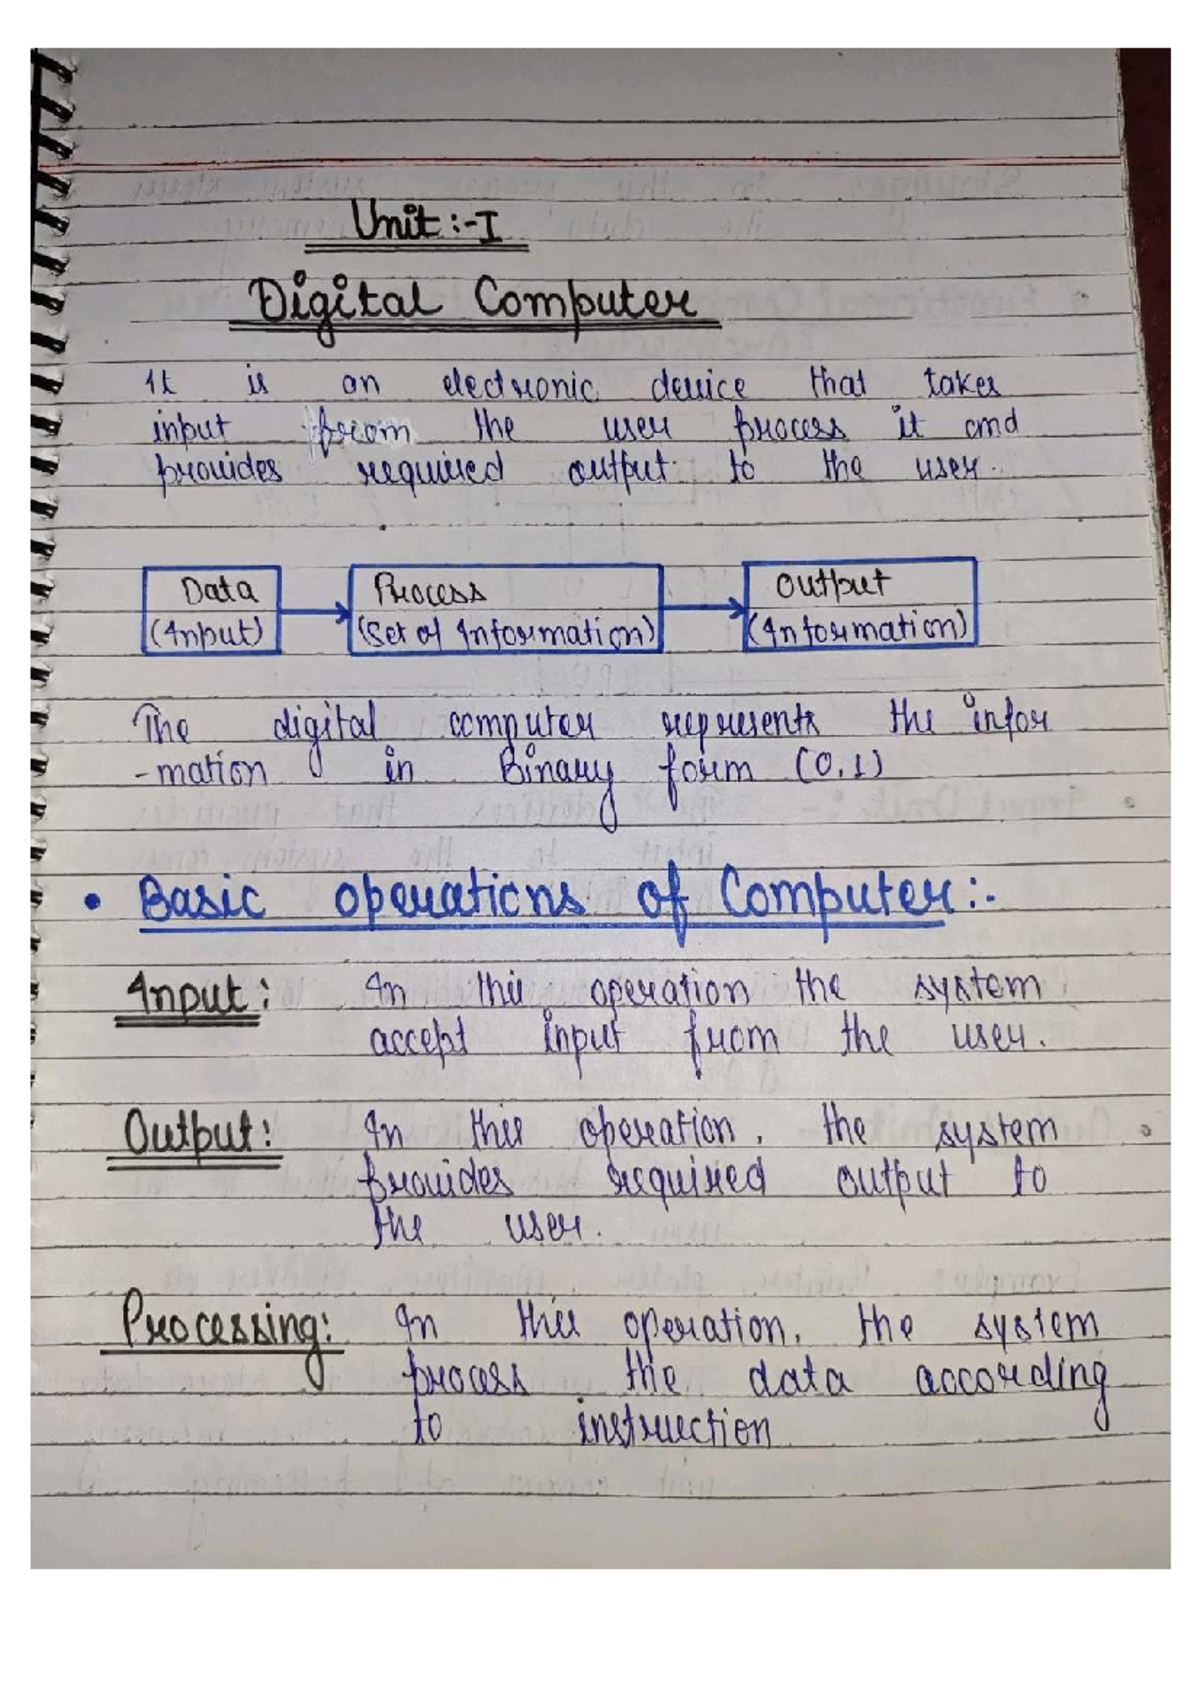 Unit :- I
Digital Computer
It is an electronic device that takes
input from the user process it and
provides required output to the user.
Data
(Input)
Process
(Set of Information)
Output
(Information)
The digital computer represents the infor
-mation in Binary form (0,1)
• Basic operations of Computer:-
Input: In this operation the system
accept input from the user.
Output: In this operation, the system
provides required output to
the user.
Processing: In this operation, the system
process the data according
to instruction